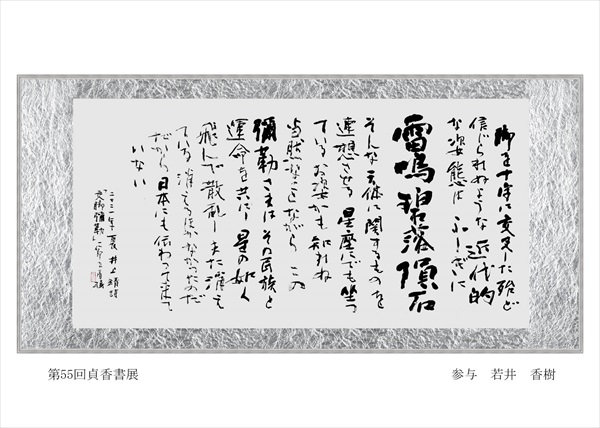 脚を十字に交叉した殆ど
信じられぬような近代的
な姿態は ふしぎに
雷鳴碧落隕石
そんな天体に関するものを
連想させる 星座にでも坐っ
ているお姿かも知れぬ
当然なことながら この
彌勒さまは その民族と
運命を共にし 星の如く
飛んで 散乱し また消え
ている 消えるほかなかったのだ
だから 日本にも伝わって来て
いない
年夏 井上靖詩
「交脚彌勒」
第55回貞香書展
参与 若井 香樹